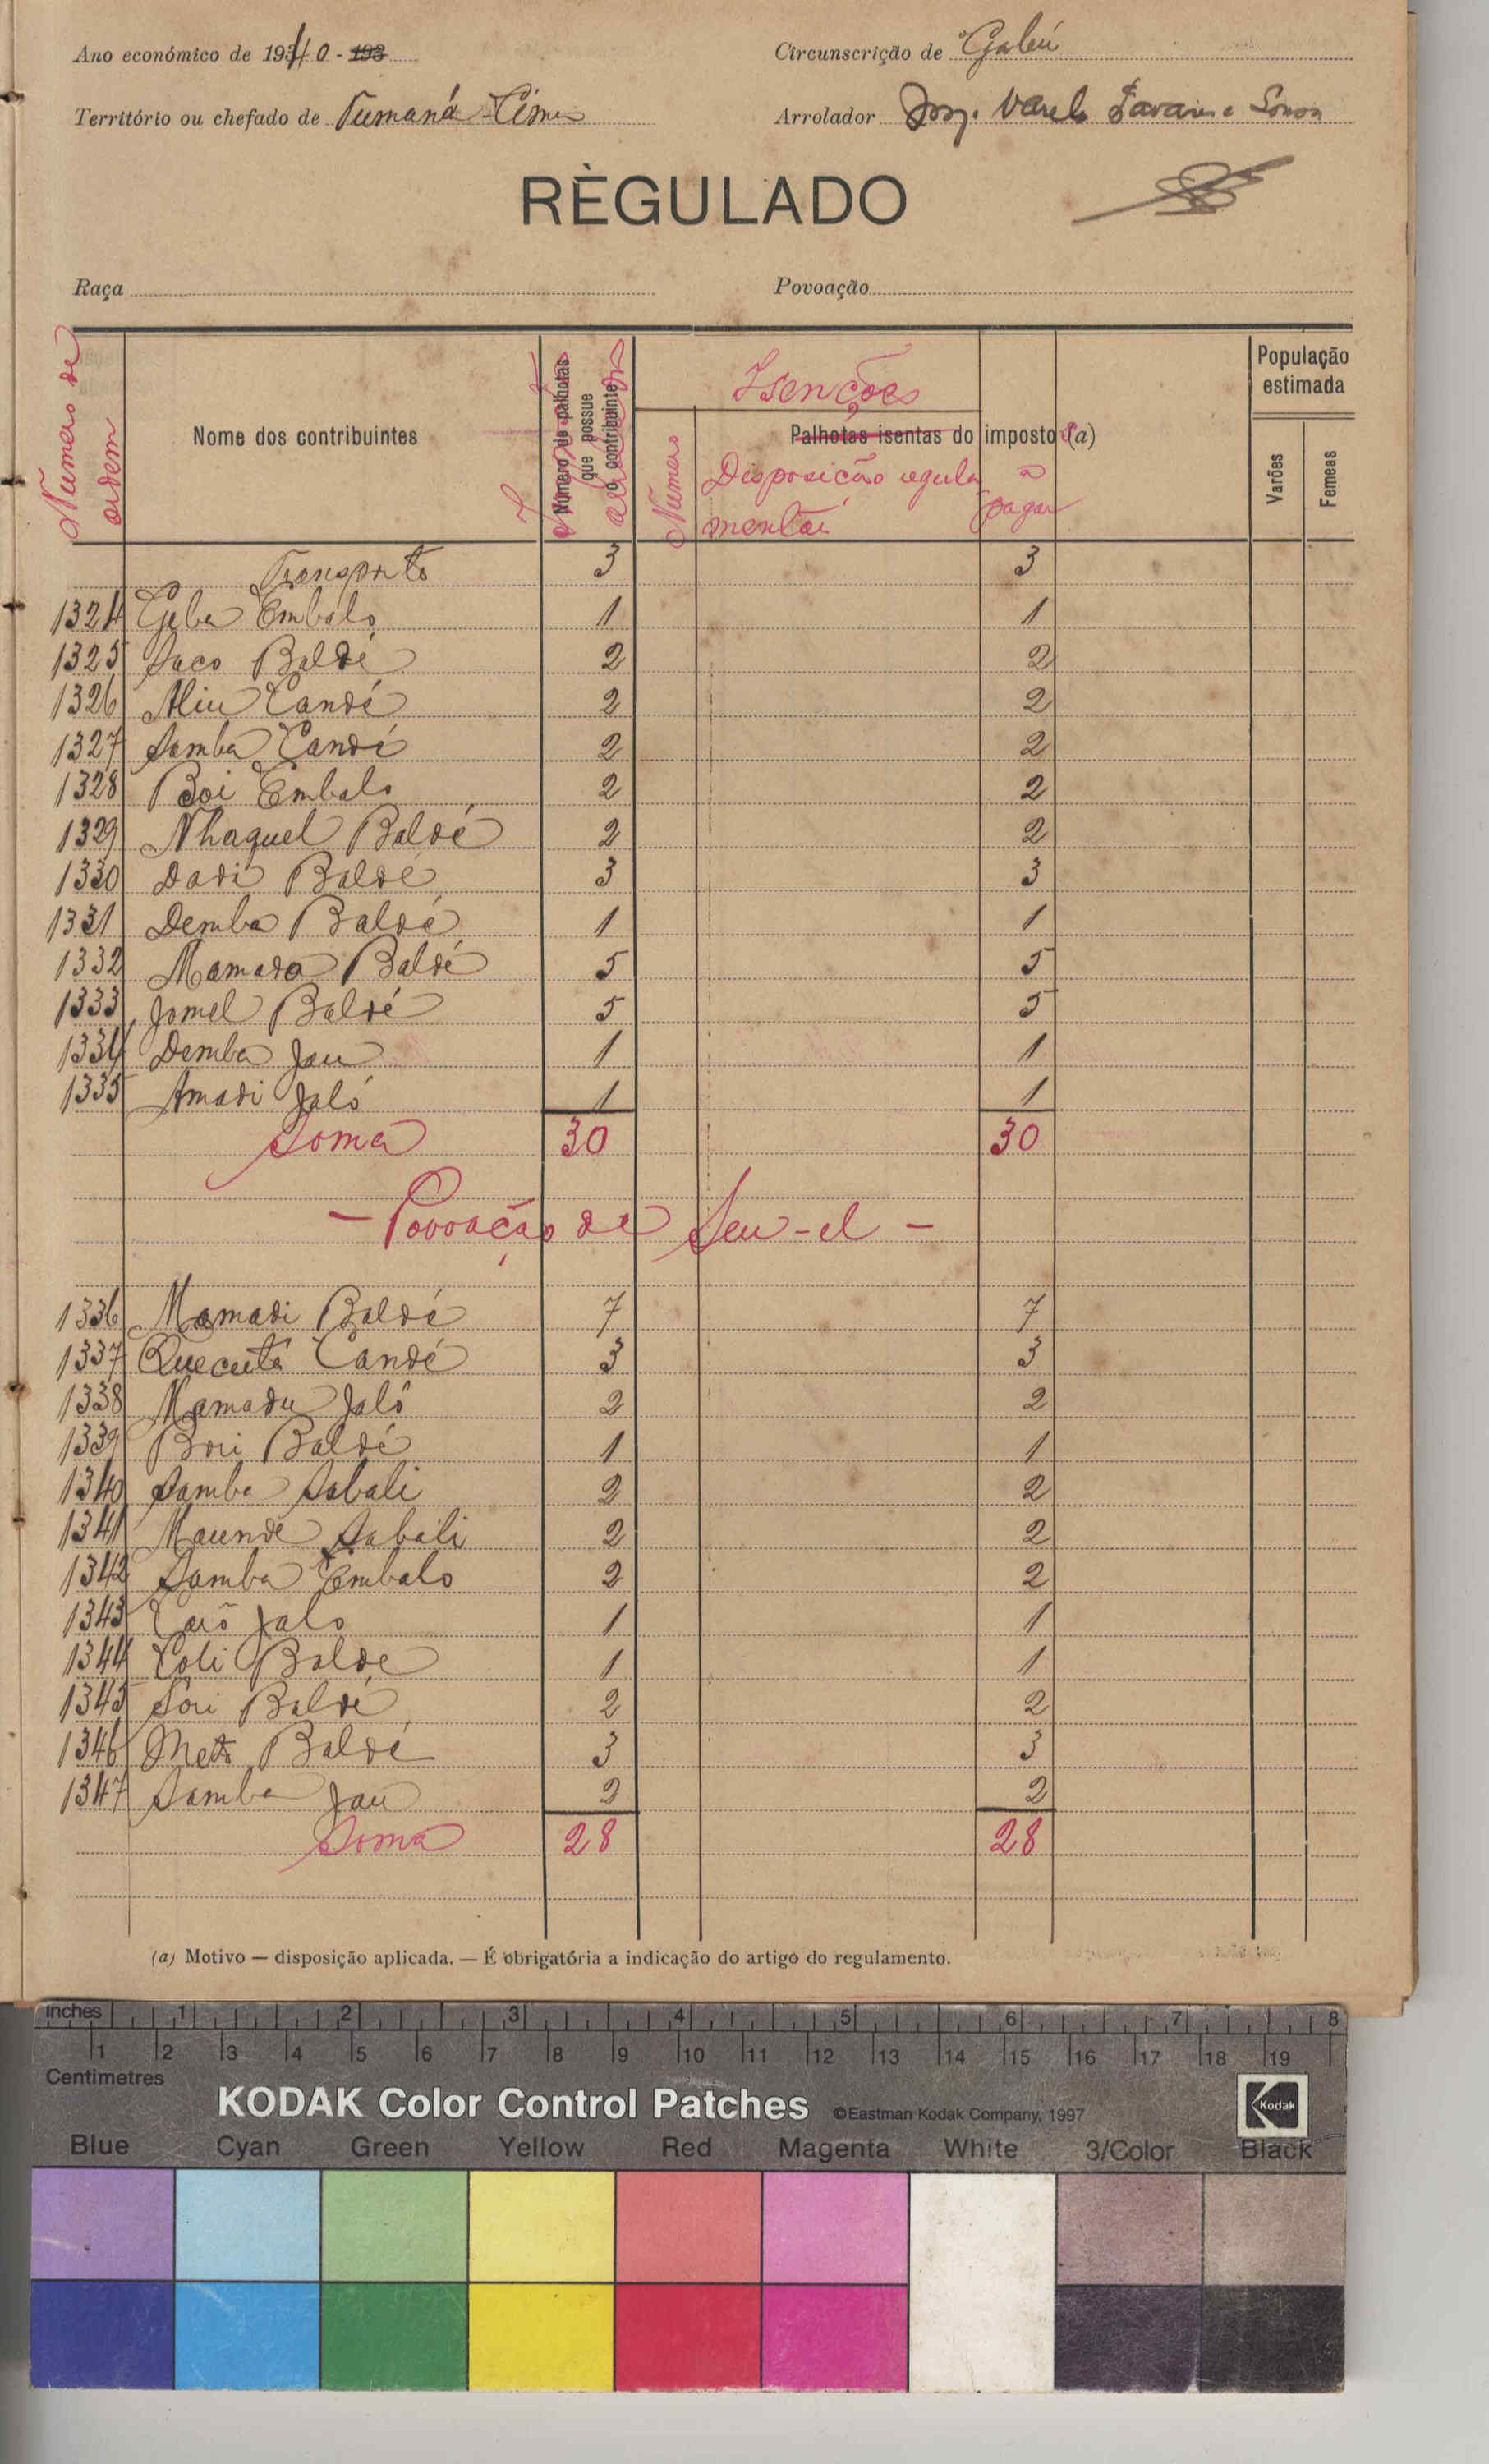 Ano económico de 1940 - 193
Circunscrição de Gabú
Território ou chefado de Tumaná Cima
Arrolador Varela Tavares e Sousa
RÈGULADO
Raça
Povoação
Número de ordem
Nome dos contribuintes
Número de palhotas que possue o contribuinte
Isenções
Número
Palhotas isentas do imposto (a)
Disposição regula
mentar
a pagar
População estimada
Varões
Femeas
Transporte 3 3
1324 Geba Embaló 1 1
1325 Saco Baldé 2 2
1326 Aliu Candé 2 2
1327 Samba Candé 2 2
1328 Boi Embalo 2 2
1329 Nhaguel Baldé 2 2
1330 Dadi Baldé 3 3
1331 Demba Baldé 1 1
1332 Mamado Baldé 5 5
1333 Jomel Baldé 5 5
1334 Demba Jau 1 1
1335 Amadi Jaló 1 1
Soma 30 30
- Povoação de Seu-el -
1336 Mamadi Baldé 7 7
1337 Quecutá Candé 3 3
1338 Mamadu Jaló 2 2
1339 Bori Baldé 1 1
1340 Samba Sabali 2 2
1341 Maunde Sabali 2 2
1342 Samba Embalo 2 2
1343 Jalo 1 1
1344 Coli Balde 1 1
1345 Sori Baldé 2 2
1346 Baldé 3 3
1347 Samba Jau 2 2
Soma 28 28
(a) Motivo — disposição aplicada. — É obrigatória a indicação do artigo do regulamento.
inches 1 2 3 4 5 6 7 8
1 2 3 4 5 6 7 8 9 10 11 12 13 14 15 16 17 18 19
Centimetres
KODAK Color Control Patches ©Eastman Kodak Company, 1997
Kodak
Blue Cyan Green Yellow Red Magenta White 3/Color Black